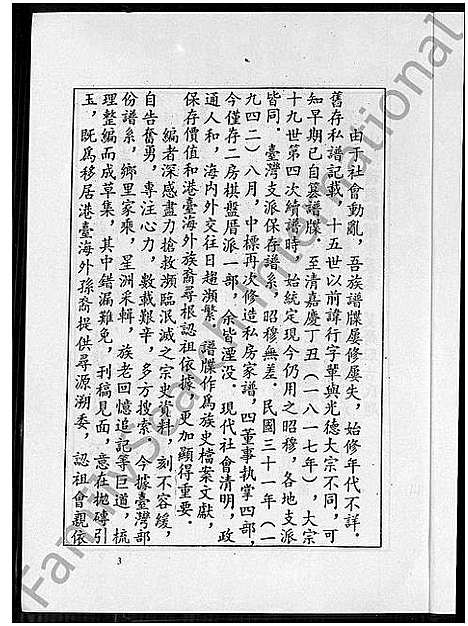 由于社會動亂，吾族譜牒屢修屢失，始修年代不詳．
舊存私譜記載，十五世以前諱行字輩與光德大宗不同，可
知早期已自篡譜牒．至清嘉慶丁丑（一八一七年），大宗
十九世第四次續譜時，始統定現今仍用之昭穆，各地支派
皆同．臺灣支派保存譜系，昭穆無差．民國三十一年（一
九四二）八月，中標再次修造私房家譜，四董事執掌四部，
今僅存二房棋盤厝派一部，余皆湮没．現代社會清明，政
通人和，海内外交往日趨瀕繁．譜牒作爲族史檔案文獻，
保存價值和港臺海外族裔尋根認祖依據，更加顯得重要．
編者深感盡力搶救瀕臨泯滅之宗史資料，刻不容緩，
自告奮勇，專注心力，數載艱辛，多方搜索，今據臺灣部
份譜系，鄉里家乘，星洲采輯，族老回憶追記等巨道，梳
理整編而成草集，其中錯漏難免，刊稿見面，意在抛磚引
玉，既爲移居港臺海外孫裔提供尋源溯委，認祖會親依
3
FamilySearch International